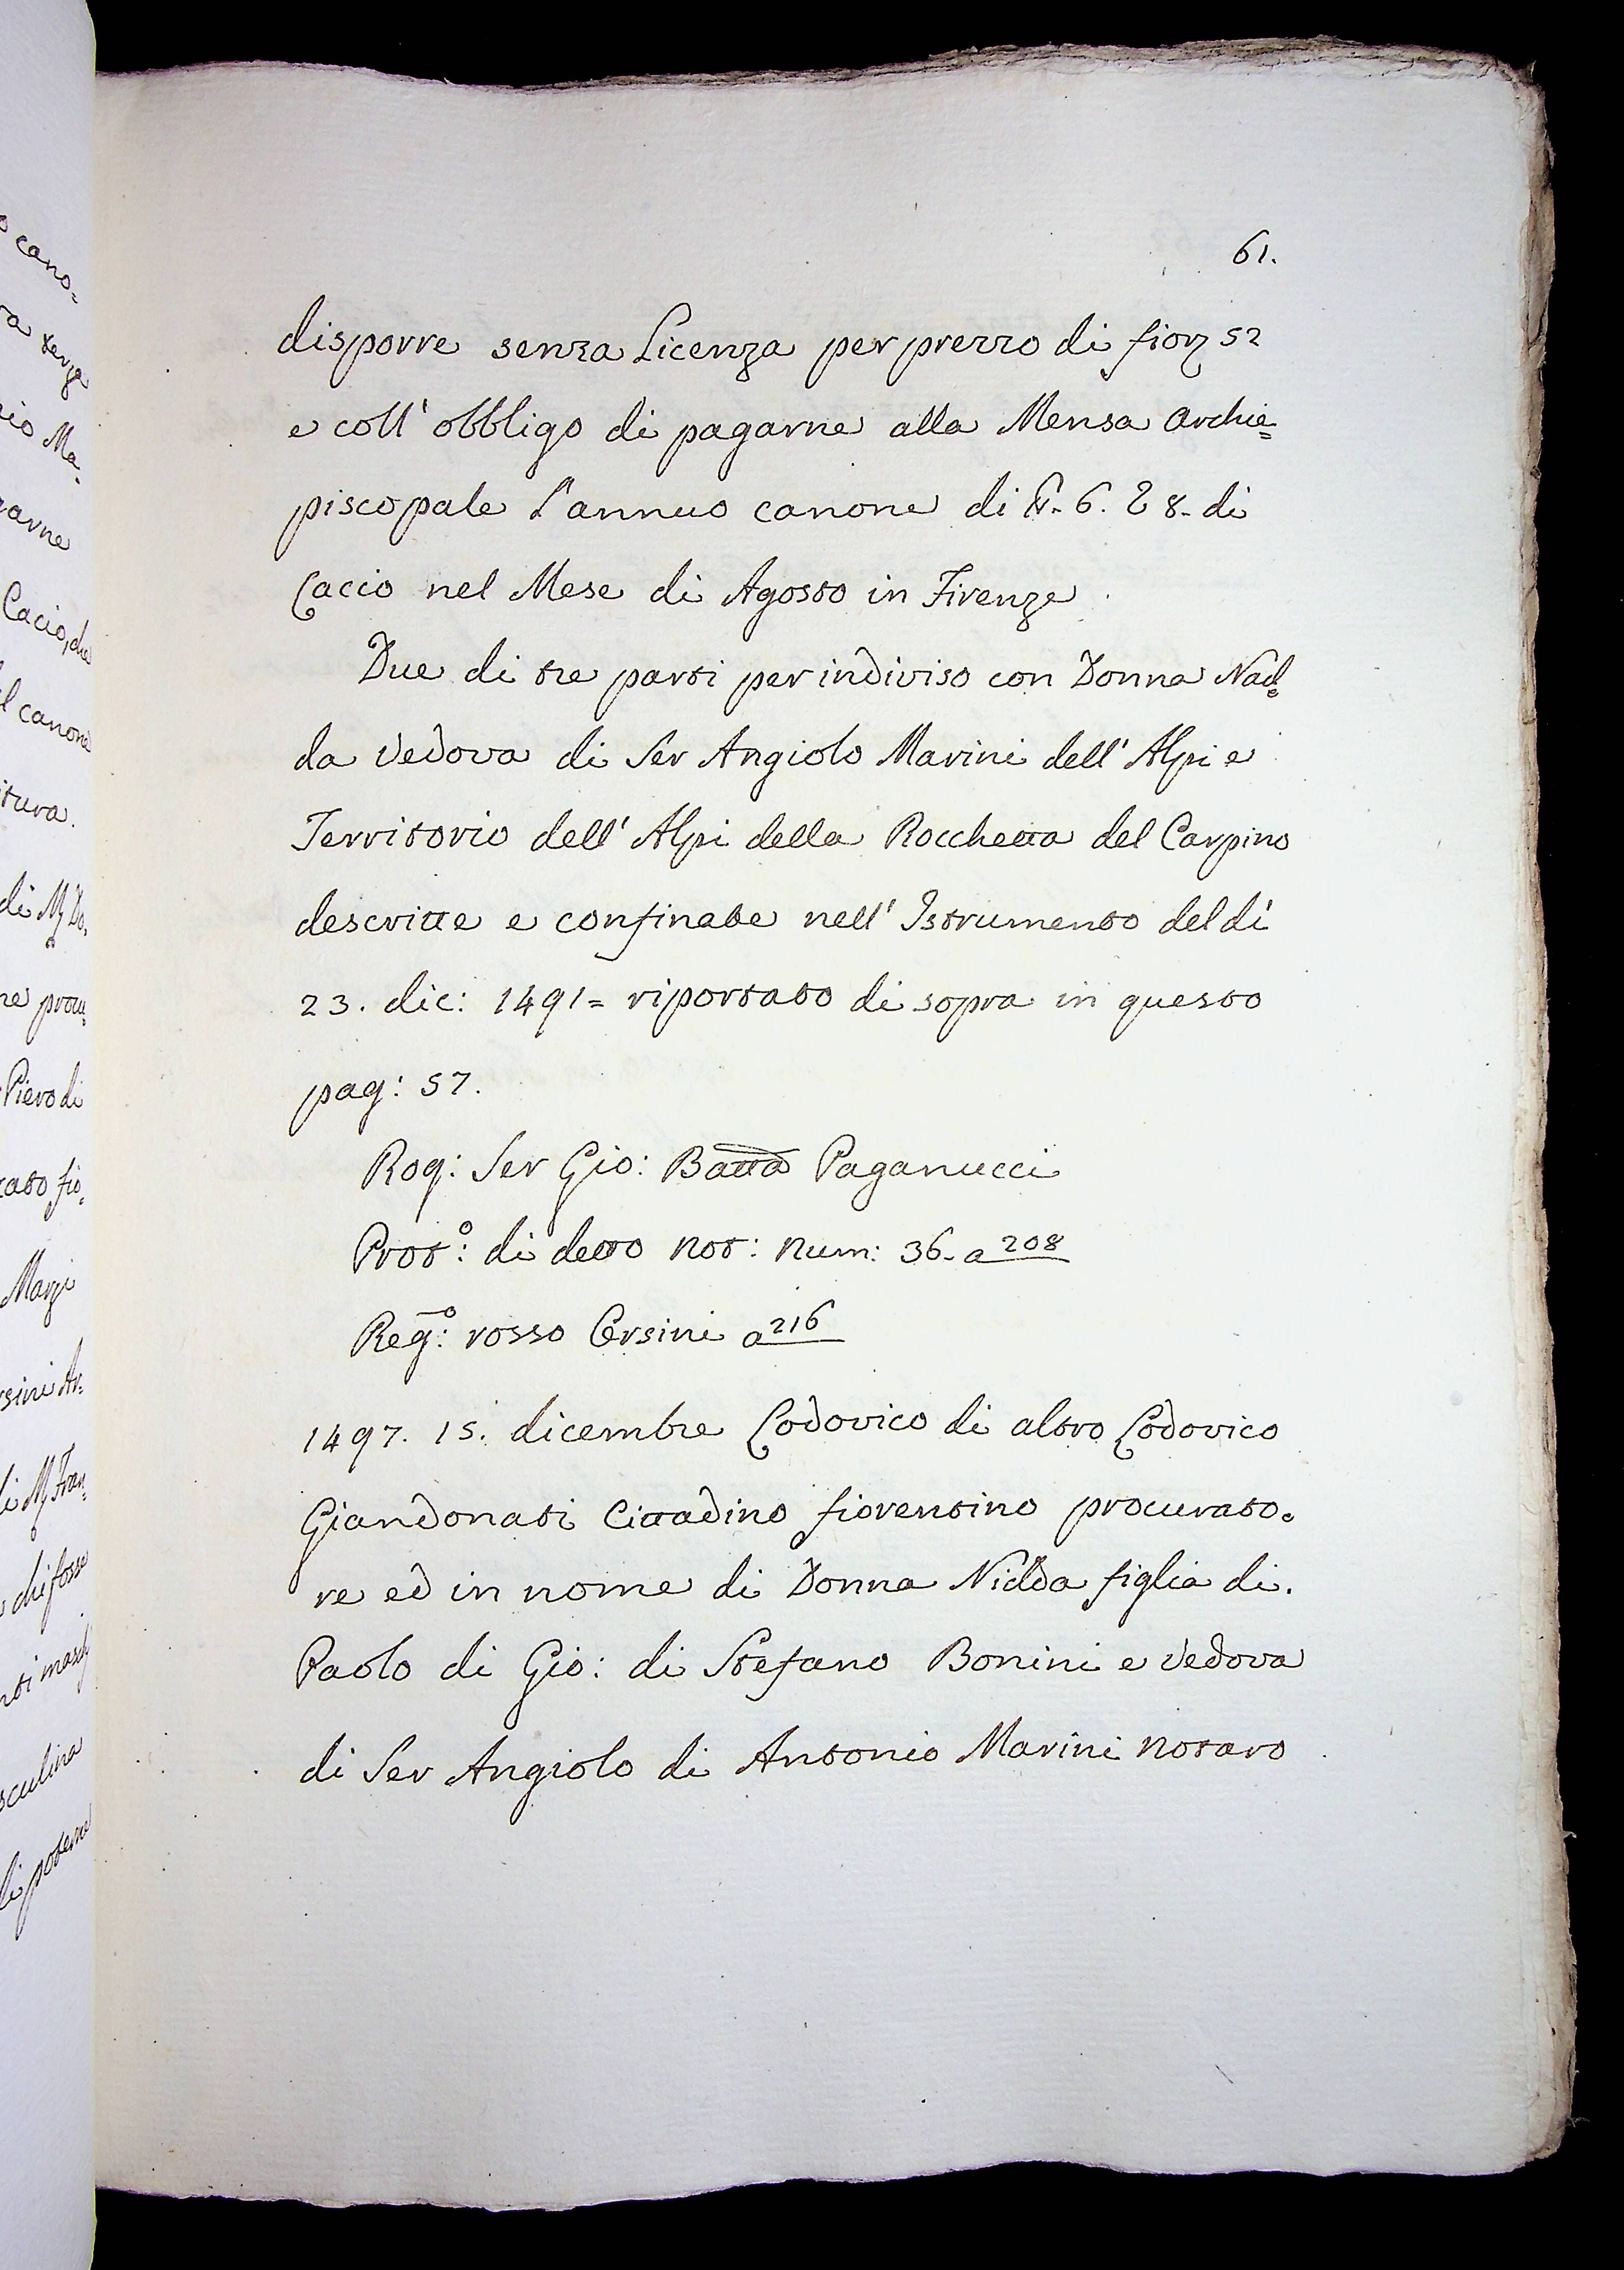 61.
disporre senza Licenza per prezzo di fior 52
e coll' obbligo di pagarne alla Mensa Archie=
piscopale l'annuo canone di 6. 8. di
Cacio nel Mese di Agosto in Firenze.
Due di tre parti per indiviso con Donna Nad=
da Vedova di Ser Angiolo Marini dell' Alpi e
Territorio dell' Alpi della Rocchetta del Carpino
descritte e confinate nell' Istrumento del dì
23. dic: 1491= riportato di sopra in questo
pag: 57.
Rog: Ser Gio: Batta Paganucci
Prot:o di detto Not: Num: 36. a 208
Reg:o rosso Orsini a 216
1497. 15. dicembre Lodovico di altro Lodovico
Giandonati Cittadino fiorentino procurato=
re ed in nome di Donna Nidda figlia di
Paolo di Gio: di Stefano Bonini e Vedova
di Ser Angiolo di Antonio Marini Notaro